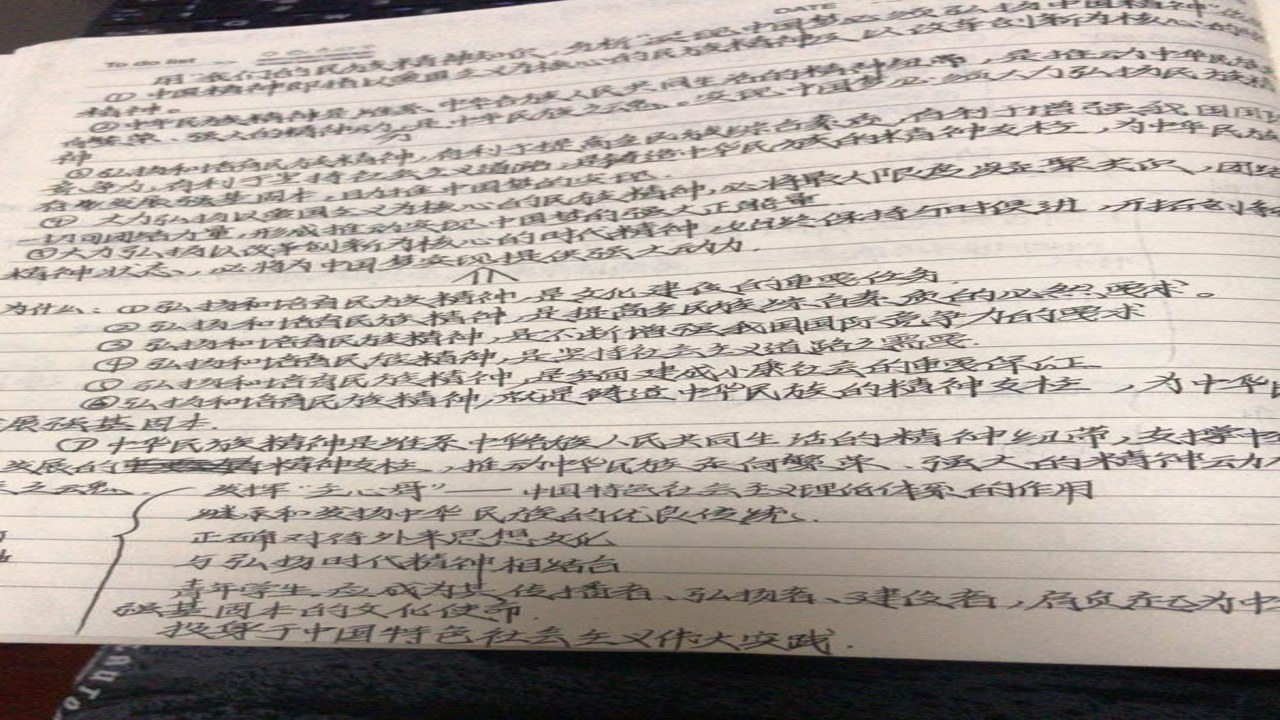 DATE
To do list
用"我们的民族精神"知识,分析"实现中国梦必须弘扬中国精神"
① 中国精神即指以爱国主义为核心的民族精神及以改革创新为核心的
精神。
②中华民族精神是维系中华各族人民共同生活的精神纽带,是推动中华民族
繁荣、强大的精神动力,是中华民族之魂。实现中国梦必须大力弘扬民族精
神
③弘扬和培育民族精神,有利于提高全民族综合素质,有利于增强我国国
竞争力,有利于坚持社会主义道路,是铸造中华民族的精神支柱,为中华民族
存和发展强基固本,且助推中国梦的实现.
④ 大力弘扬以爱国主义为核心的民族精神,必将最大限度凝聚共识,团结
一切可团结力量,形成推动实现中国梦的强大正能量
⑤大力弘扬以改革创新为核心的时代精神,始终保持与时俱进,开拓创新
精神状态,必将为中国梦实现提供强大动力.
为什么:①弘扬和培育民族精神,是文化建设的重要任务
② 弘扬和培育民族精神,是提高全民族综合素质的必然要求。
③ 弘扬和培育民族精神,是不断增强我国国际竞争力的要求
④ 弘扬和培育民族精神,是坚持社会主义道路之需要.
⑤ 弘扬和培育民族精神,是全面建成小康社会的重要保证
⑥弘扬和培育民族精神,就是铸造中华民族的精神支柱,为中华
展强基固本.
⑦ 中华民族精神是维系中华各族人民共同生活的精神纽带,支撑中
发展的精神支柱,推动中华民族走向繁荣、强大的精神动
之魂.
发挥"主心骨"——中国特色社会主义理论体系的作用
继承和发扬中华民族的优良传统.
正确对待外来思想文化
与弘扬时代精神相结合
青年学生应成为其传播者、弘扬者、建设者,肩负在己为中
强基固本的文化使命.
投身于中国特色社会主义伟大实践.